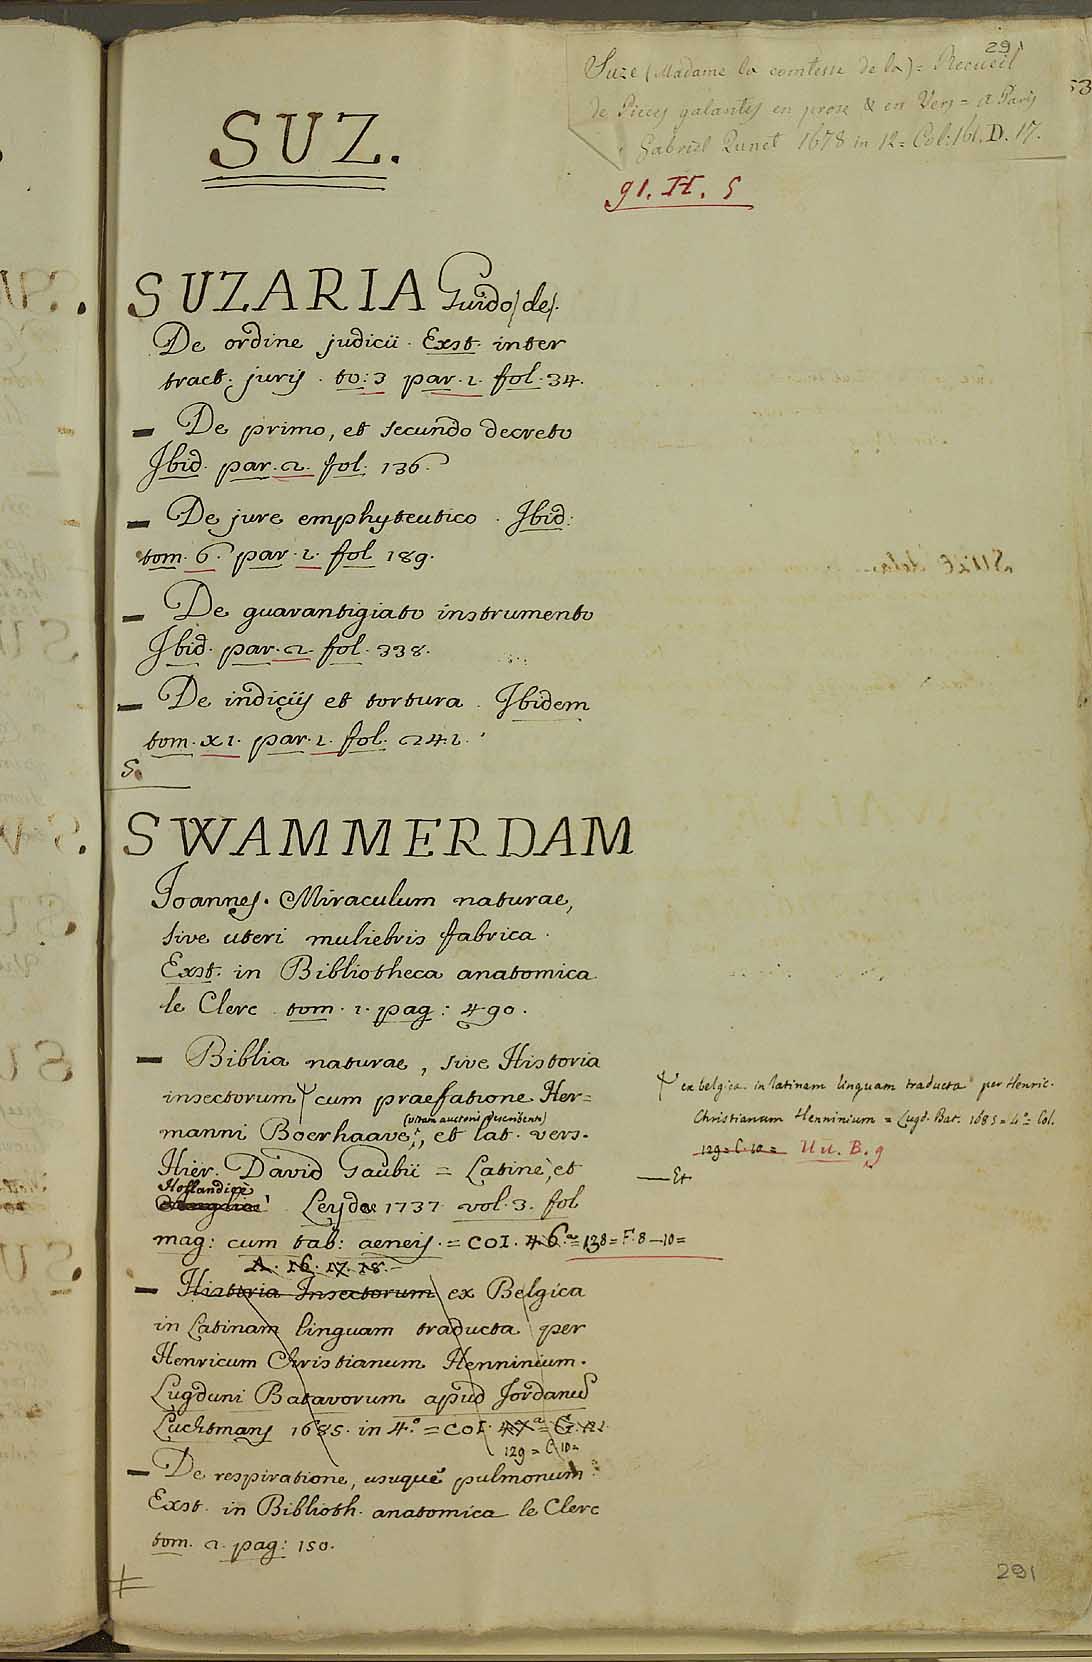 291
Suze (Madame la comtesse de la) = Recueil
de Pieces galantes en prose & en Vers = a Paris
Gabriel Quinet 1678 in 12 = Col: 161. D. 17.
91. H. 5
53
SUZ.
SUZARIA Guido/de/.
De ordine judicii. Exst. inter
tract. juris. to: 3 par. 1. fol. 34.
— De primo, et secundo decreto
Ibid. par. 2. fol. 136.
— De jure emphyteutico. Ibid:
tom. 6. par. 1. fol 189.
— De guarantigiato instrumento
Ibid. par. 2. fol. 338.
— De indiciis et tortura. Ibidem
tom. XI. par. 1. fol. 241.
S.
SWAMMERDAM
Ioannes. Miraculum naturae,
sive uteri muliebris fabrica.
Exst. in Bibliotheca anatomica
le Clerc tom. 1. pag: 490.
— Biblia naturae, sive Historia
insectorum cum praefatione Her=
(vitam auctoris describente)
manni Boerhaave, et lat. vers.
Hier. David Gaubii = Latine, et
Hollandice
Leydae 1737 vol. 3. fol
mag: cum tab: aeneis. = COI. 46.a = 138 = F. 8 — 10 =
A. 16. 17. 18.
— Historia Insectorum ex Belgica
in Latinam linguam traducta per
Henricum Christianum Henninium.
Lugduni Batavorum apud Jordanus
Luchtmans 1685. in 4.o = COI. 47.a = G. 21
129 = C. 10 =
— De respiratione, usuque pulmonum.
Exst. in Biblioth. anatomica le Clerc
tom. 2. pag: 150.
ex belgica in latinam linguam traducta per Henric.
Christianum Henninium = Lugd. Bat. 1685 = 4.o = Col.
129 = C. 10 = Uu. B. 9
— Et
291